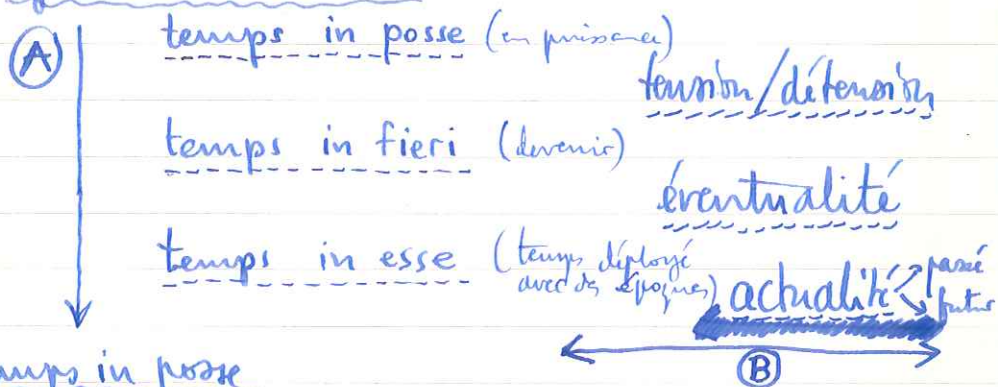 A
temps in posse (en puissance)
tension/détension
temps in fieri (devenir)
éventualité
temps in esse (temps déployé
avec des époques)
actualité
passé
futur
B
temps in posse